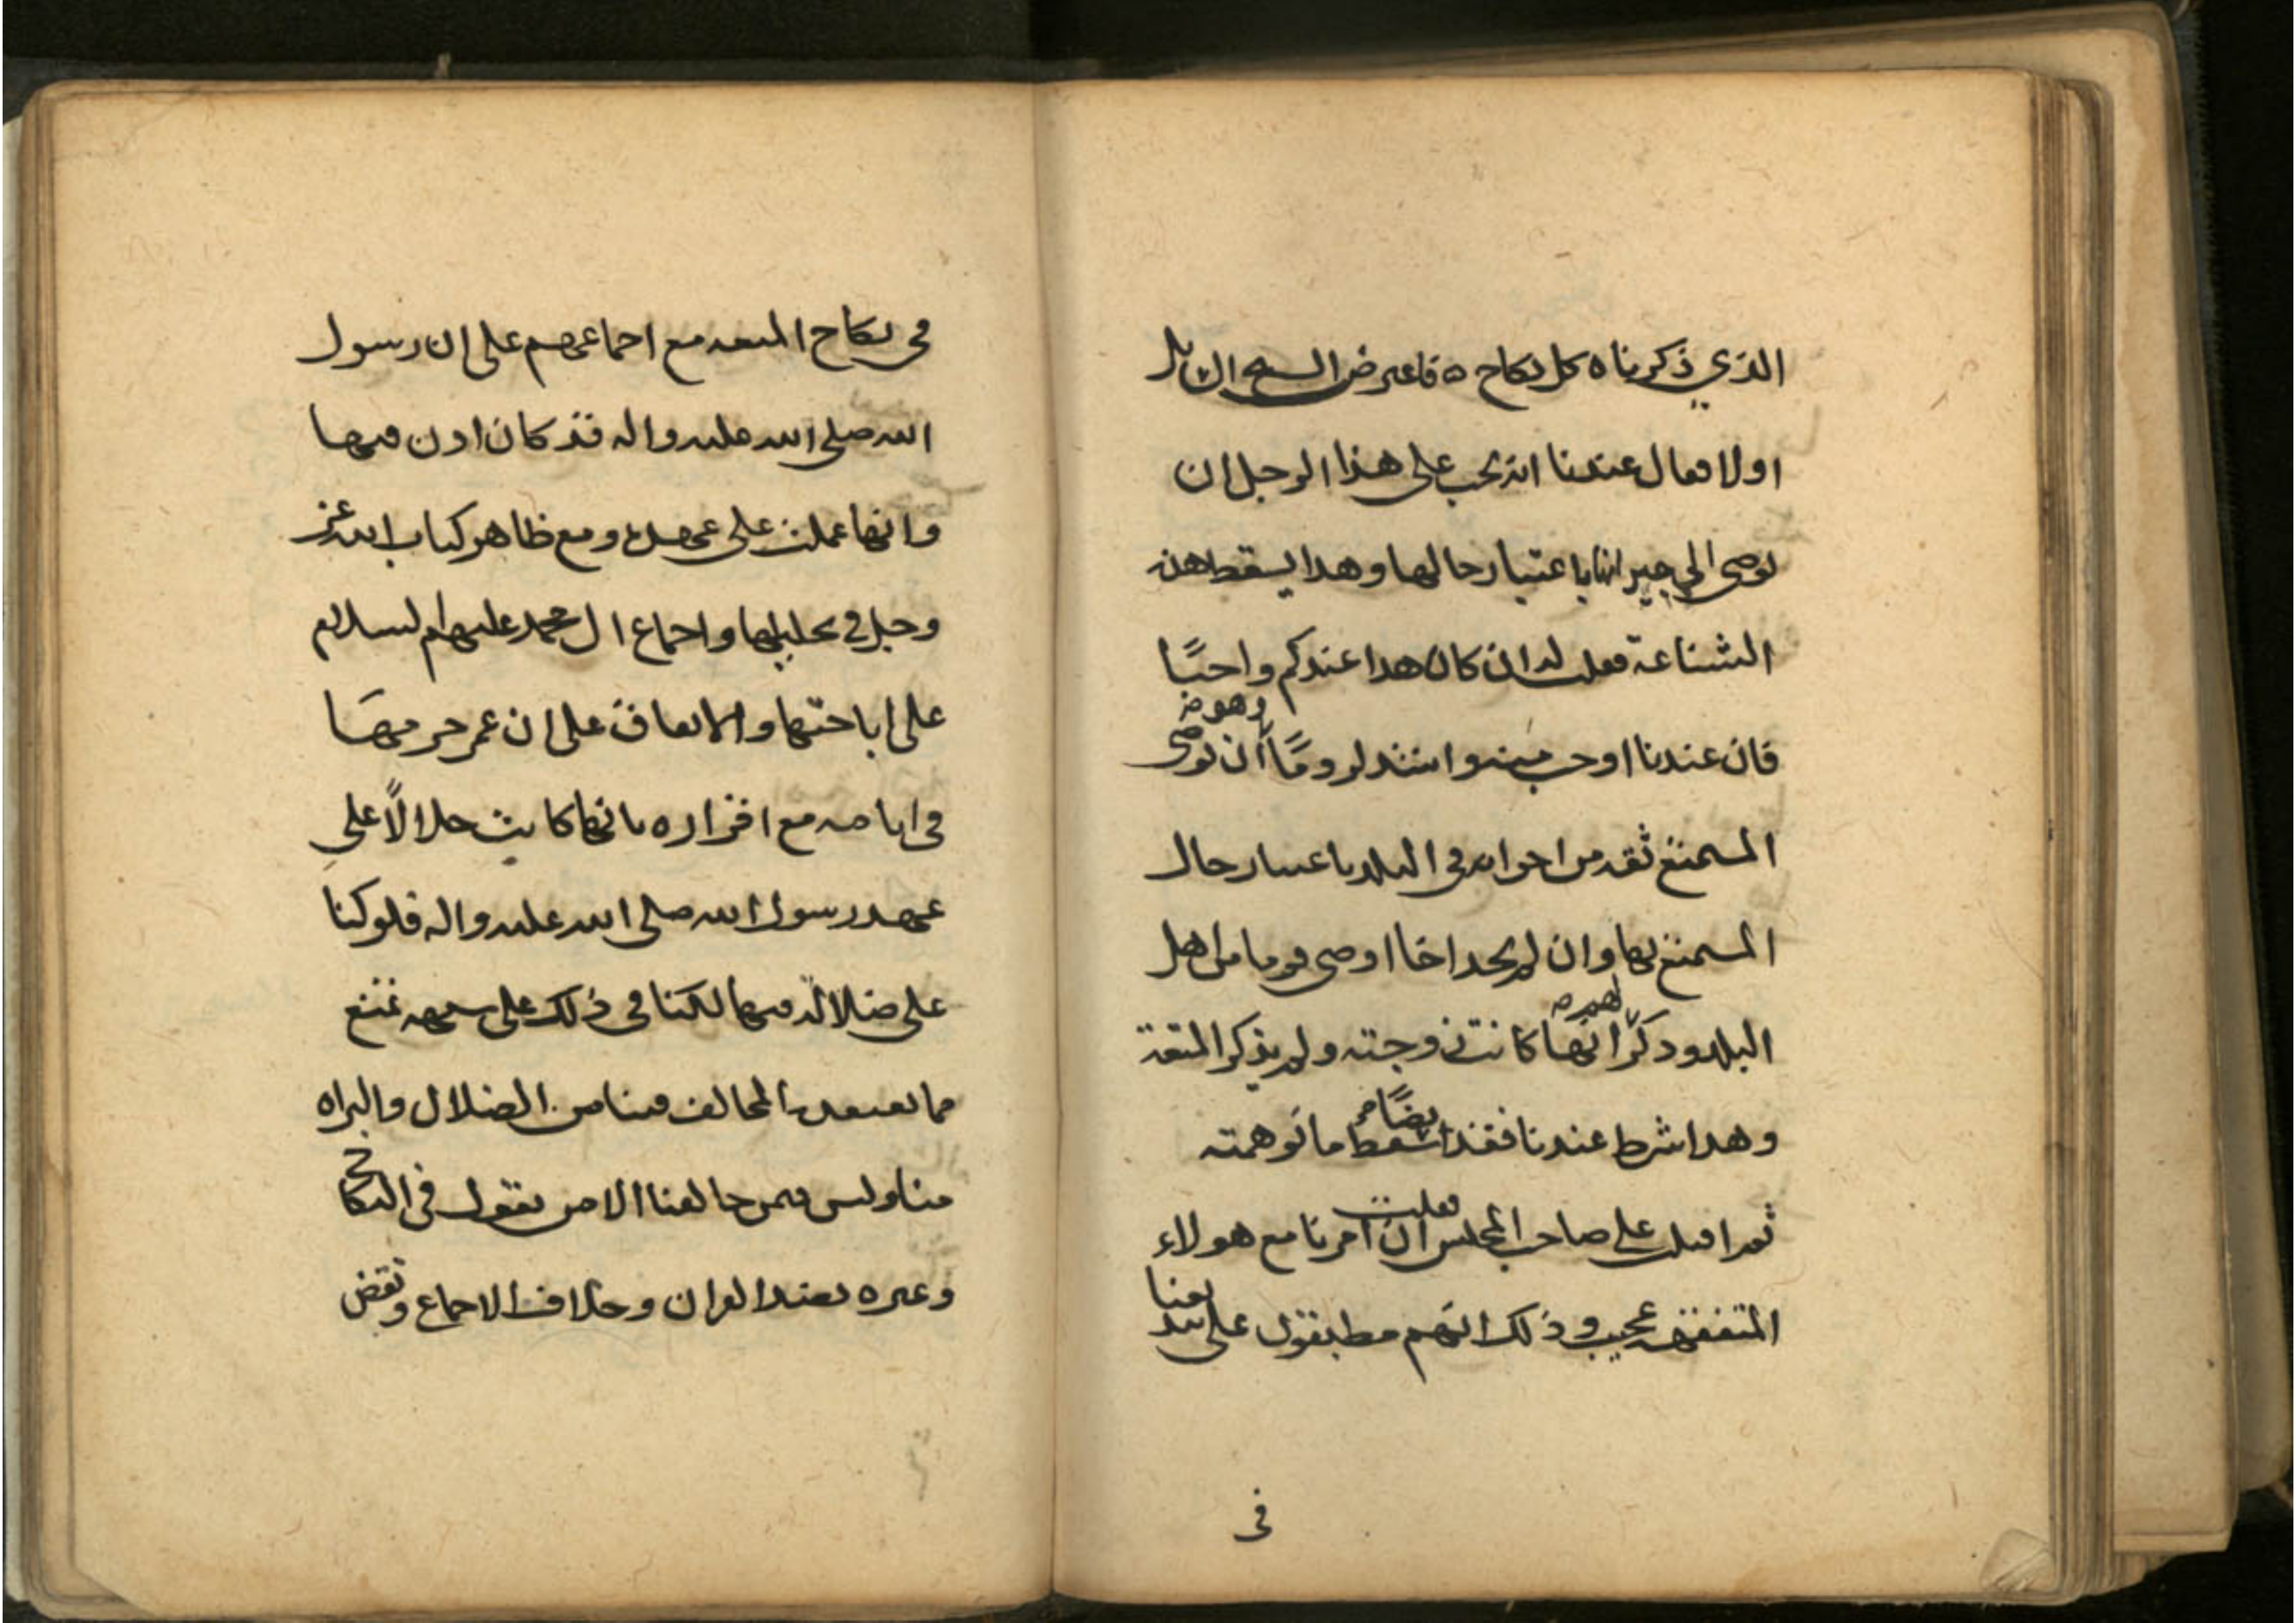 الذي ذكرناه كل نكاح ه فاعترض الشيخ الن
اولا فقال عندنا انه يجب على هذا الرجل ان
يوصي الى جيرانها باعتبار حالها وهذا يسقط هذه
الشناعة فقلت له ان كان هذا عندكم واجبًا
فان عندنا اوجب منه واشد لزومًا ان يوصي
وهو
المستمتع ثقه من اخوانه في البلد باعتبار حال
المستمتع بها وان لم يجد اخا اوصى قوما من اهل
البلد وذكر انها كانت زوجته ولم يذكر المتعة
لهم
وهذا شرط عندنا فقد سقط ما توهمته
ايضًا
ثم اقبلت على صاحب المجلس ان امرنا مع هولاء
فقلت
المتفقهه عجيب وذلك انهم مطبقون على
في
في نكاح المتعه مع اجماعهم على ان رسول
الله صلى الله عليه واله قد كان اذن فيها
وانها عملت على عهده ومع ظاهر كتاب الله عز
وجل في تحليلها واجماع ال محمد عليهم السلام
على اباحتها والاتفاق على ان عمر حرمها
في ايامه مع اقراره بانها كانت حلالًا على
عهد رسول الله صلى الله عليه واله فلو كنا
على ضلاله فيها لكنا في ذلك على شبهه تمنع
مما يعتقده المخالف فينا من الضلال والبراه
منا وليس فيمن خالفنا الا من يقول في النكاح
وغيره بضد القران وخلاف الاجماع ونقض